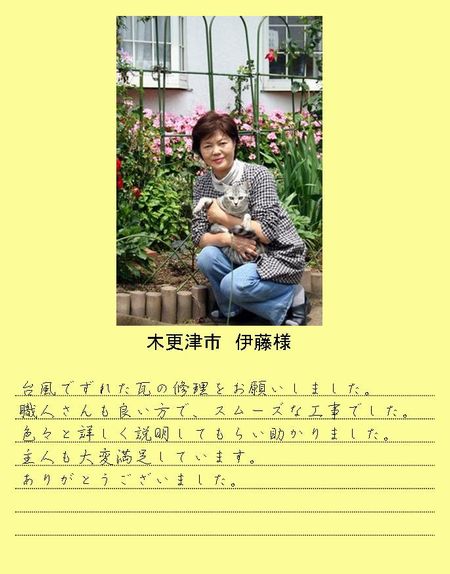 木更津市　伊藤様
台風でずれた瓦の修理をお願いしました。
職人さんも良い方で、スムーズな工事でした。
色々と詳しく説明してもらい助かりました。
主人も大変満足しています。
ありがとうございました。